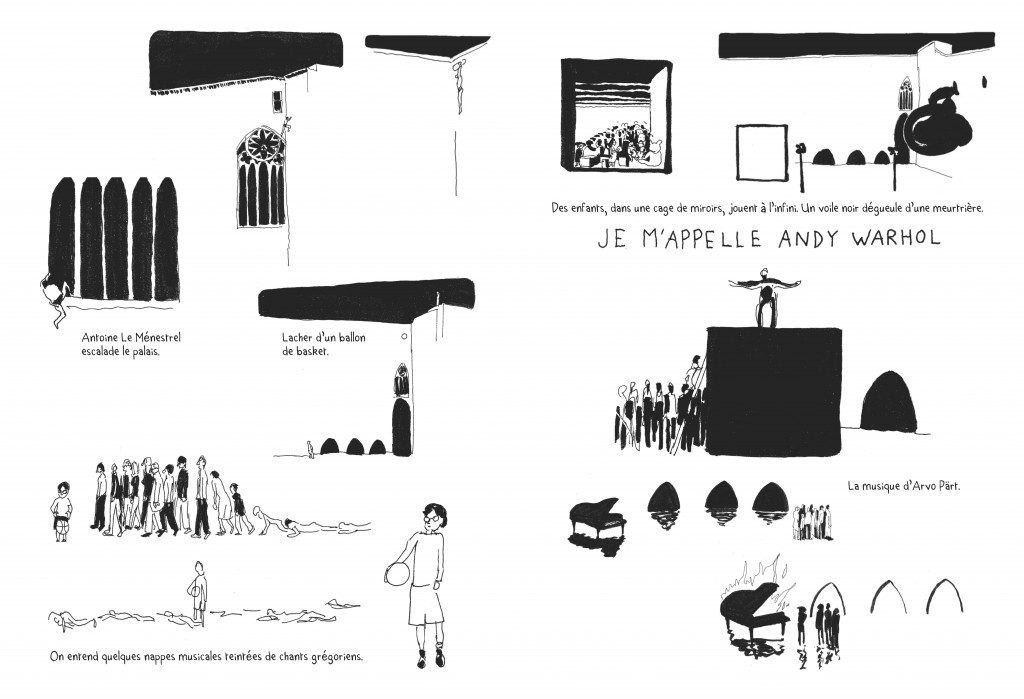 Antoine Le Ménestrel
escalade le palais.
Lacher d'un ballon
de basket.
On entend quelques nappes musicales teintées de chants grégoriens.
Des enfants, dans une cage de miroirs, jouent à l'infini. Un voile noir dégueule d'une meurtrière.
JE M'APPELLE ANDY WARHOL
La musique d'Arvo Pärt.